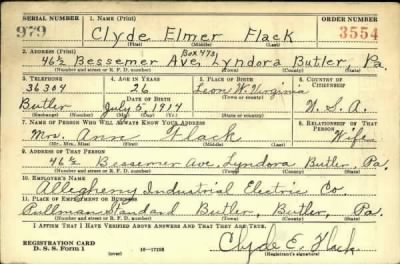 SERIAL NUMBER 1. NAME (Print) ORDER NUMBER
979 Clyde Elmer Flack 3554
(First) (Middle) (Last)
2. ADDRESS (Print) Box 473
46½ Bessemer Ave, Lyndora Butler, Pa.
(Number and street or R. F. D. number) (Town) (County) (State)
3. TELEPHONE 4. AGE IN YEARS 5. PLACE OF BIRTH 6. COUNTRY OF CITIZENSHIP
36304 26 Leon W. Virginia
DATE OF BIRTH (Town or county)
Butler July 5 1914 U.S.A.
(Exchange) (Mo.) (Day) (Yr.) (State or country)
7. NAME OF PERSON WHO WILL ALWAYS KNOW YOUR ADDRESS 8. RELATIONSHIP OF THAT PERSON
Mrs. Ann Flack Wife
(Mr., Mrs., Miss) (First) (Middle) (Last)
9. ADDRESS OF THAT PERSON
46½ Bessemer Ave, Lyndora Butler Pa.
(Number and street or R. F. D. number) (Town) (County) (State)
10. EMPLOYER'S NAME
Allegheny Industrial Electric Co.
11. PLACE OF EMPLOYMENT OR BUSINESS
Pullman Standard Butler, Butler, Pa.
(Number and street or R. F. D. number) (Town) (County) (State)
I AFFIRM THAT I HAVE VERIFIED ABOVE ANSWERS AND THAT THEY ARE TRUE.
REGISTRATION CARD Clyde E. Flack
D. S. S. Form 1 (over) 16-17105 (Registrant's signature)